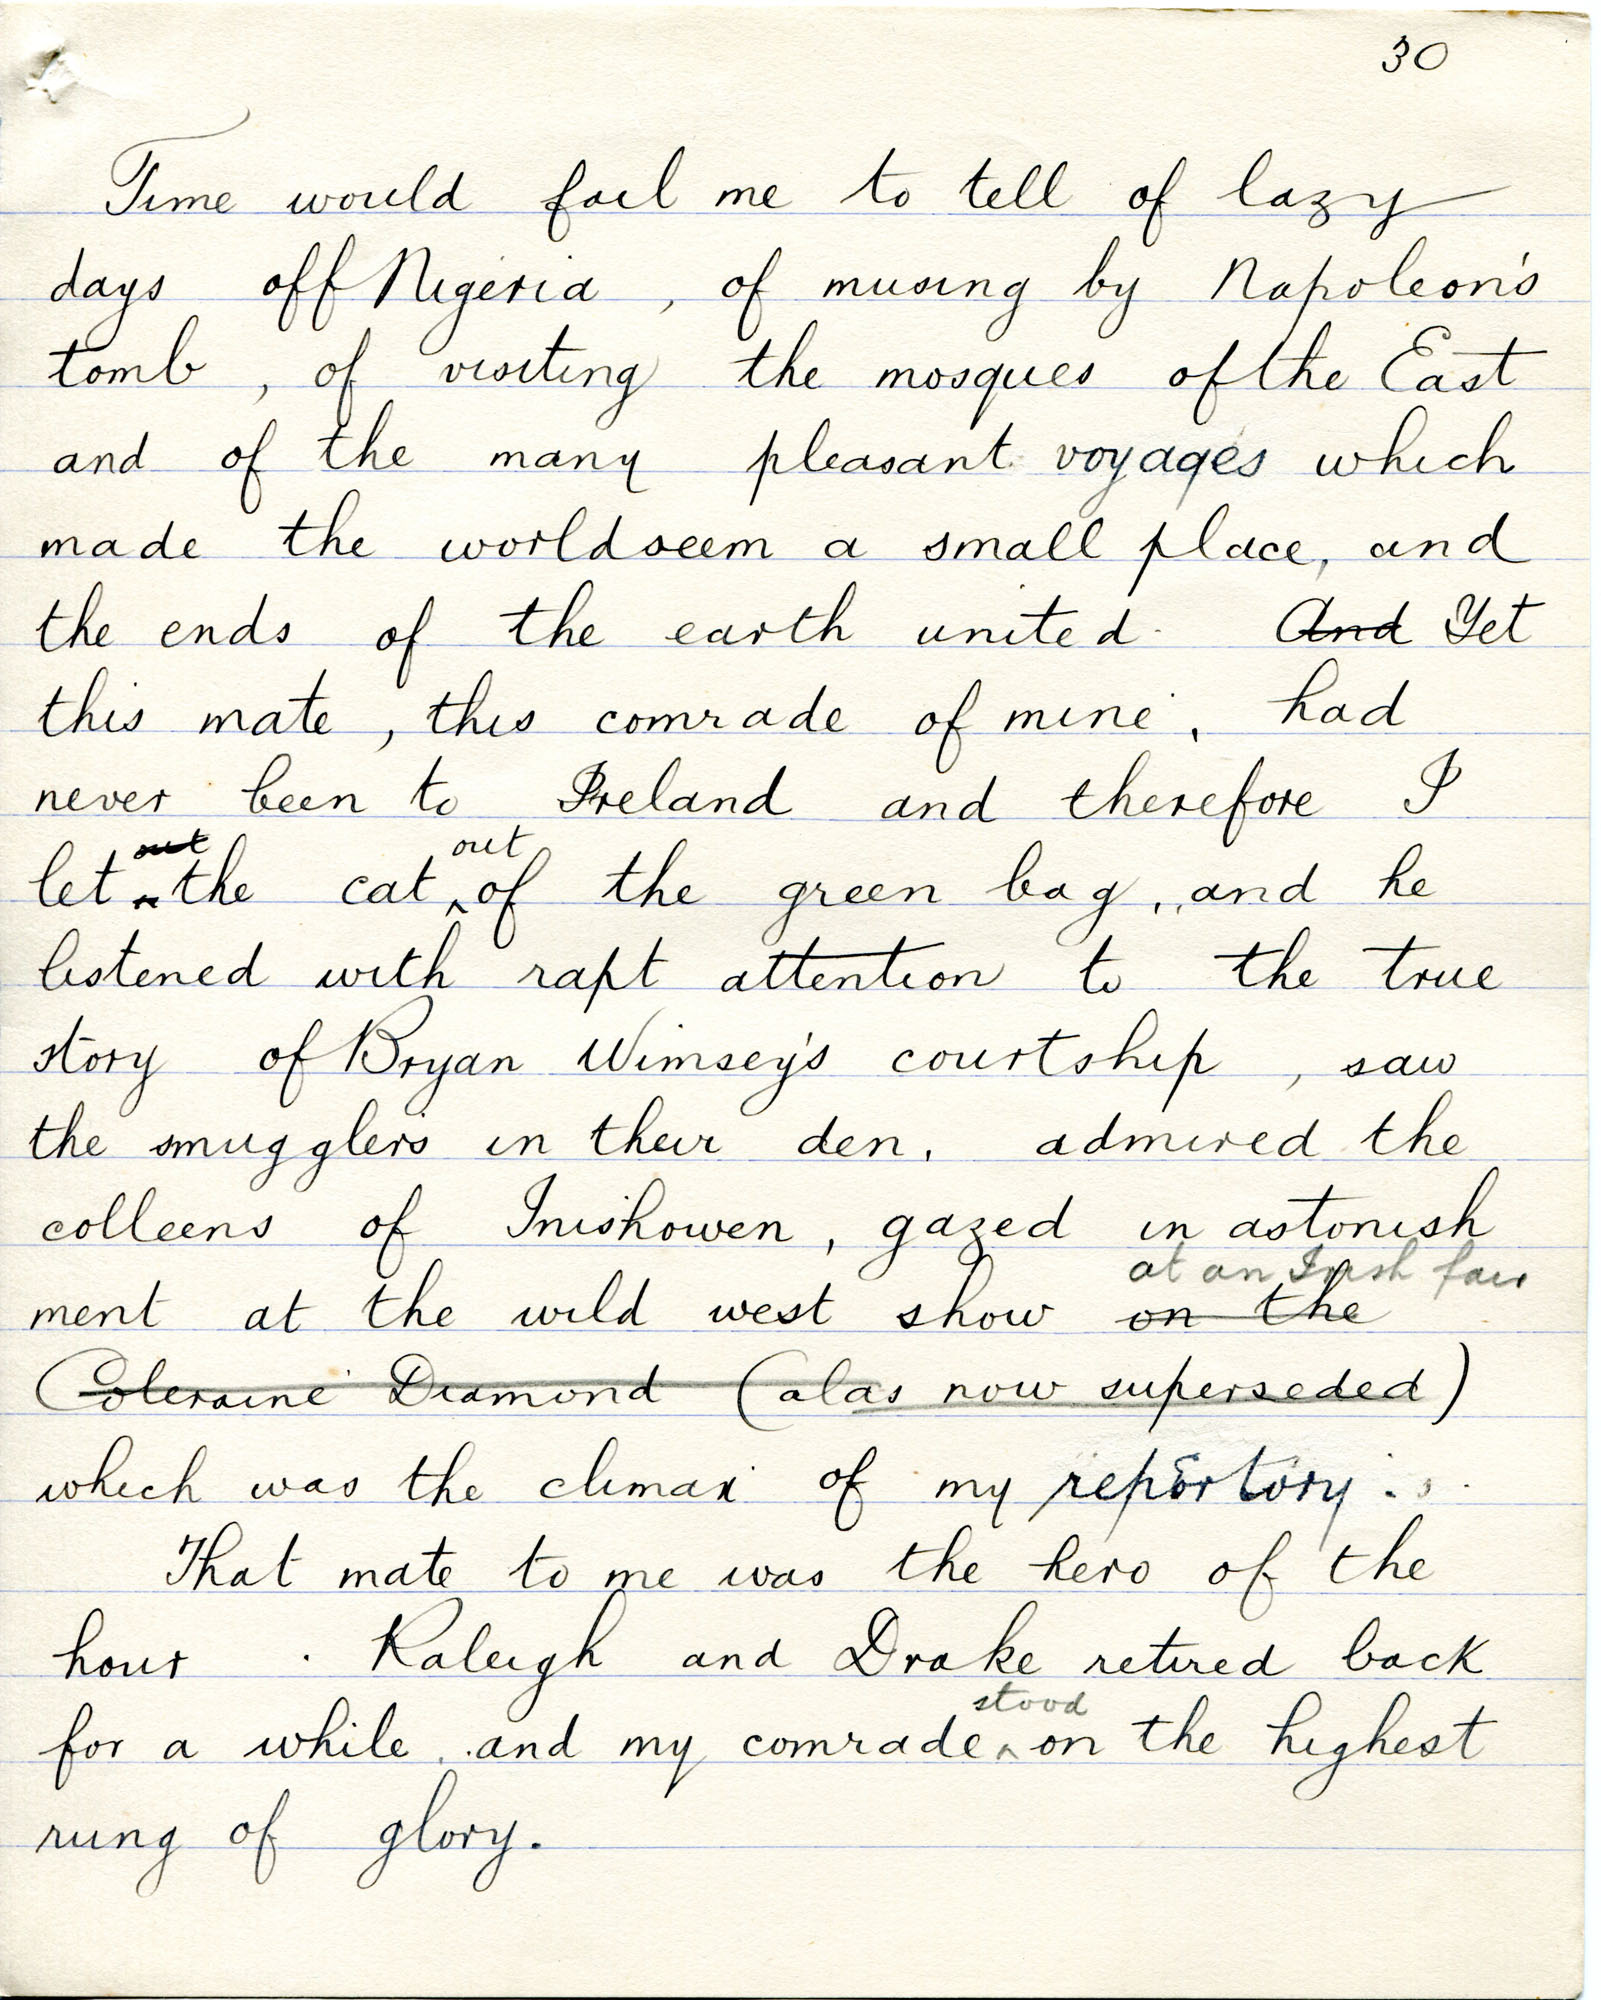 30
Time would fail me to tell of lazy
days off Nigeria, of musing by Napoleon's
tomb, of visiting the mosques of the East
and of the many pleasant voyages which
made the world seem a small place, and
the ends of the earth united. And Yet
this mate, this comrade of mine, had
never been to Ireland and therefore I
out out
let the cat of the green bag, and he
listened with rapt attention to the true
story of Bryan Wimsey's courtship, saw
the smugglers in their den, admired the
colleens of Inishowen, gazed in astonish
at an Irish fair
ment at the wild west show on the
Coleraine Diamond (alas now superseded)
which was the climax of my repertory.
That mate to me was the hero of the
hour. Raleigh and Drake retired back
stood
for a while, and my comrade on the highest
rung of glory.